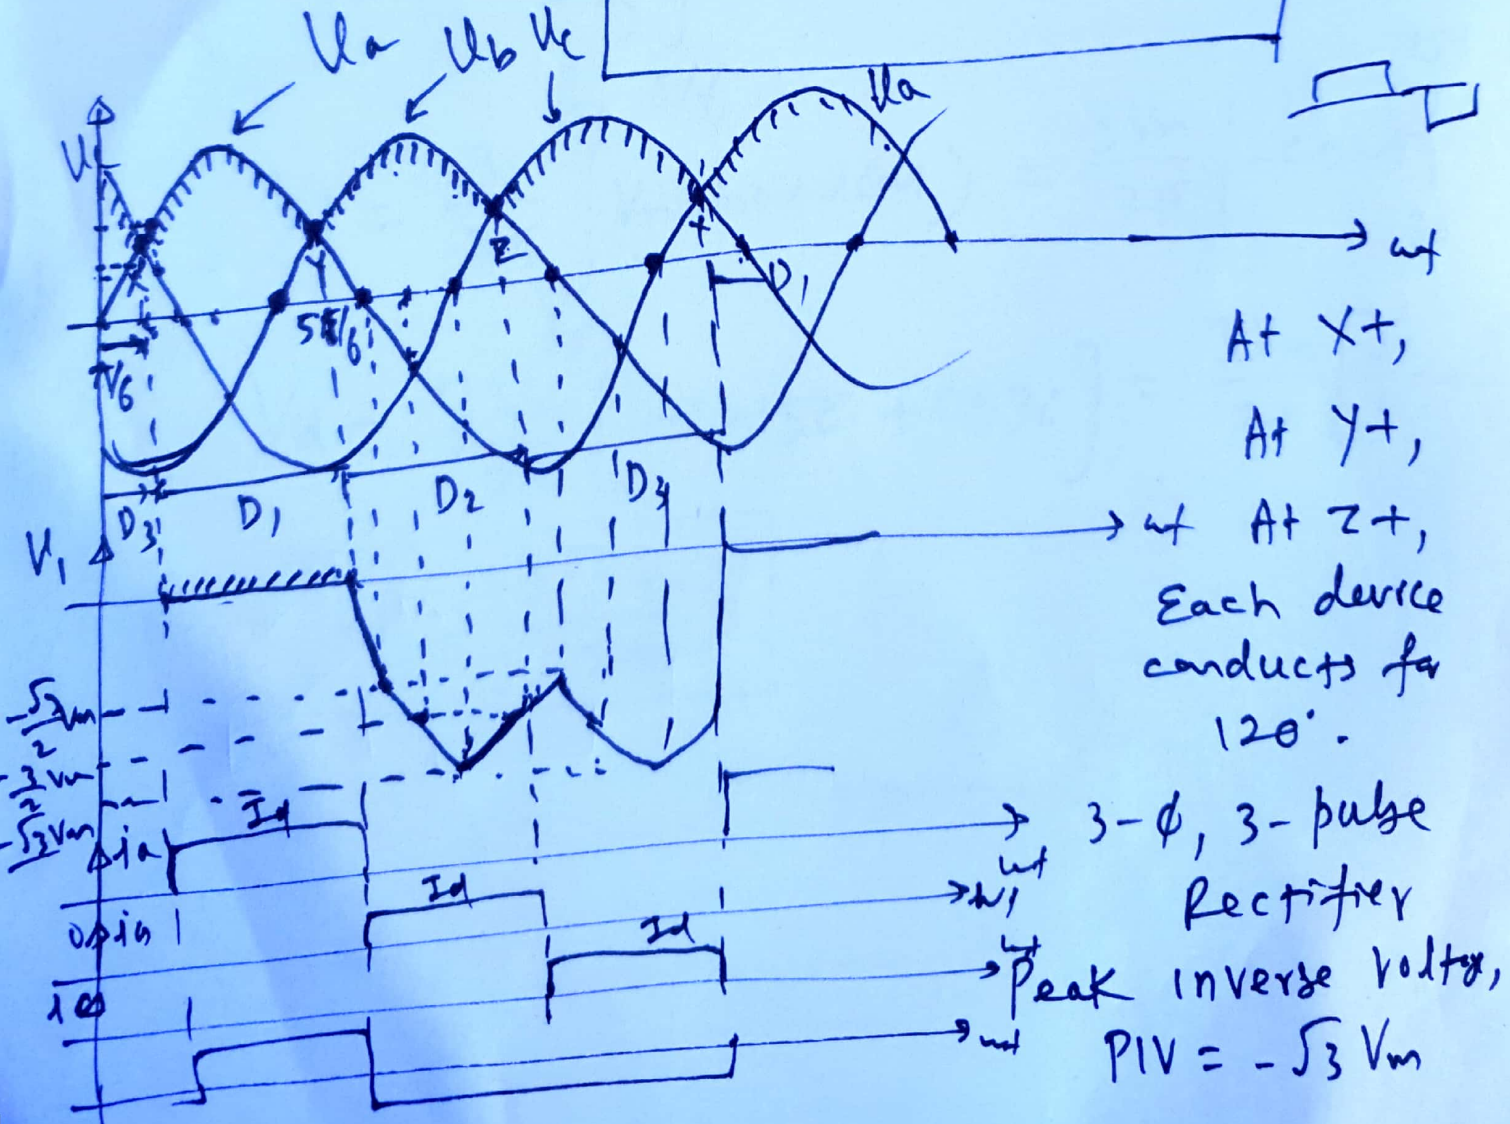 Ua Ub Uc
Ua
X Y Z X
π/6
5π/6
ωt
D1
D3 D1 D2 D3
V1
ωt
-√3Vm/2
-3Vm/2
-√3Vm
ia Id
ωt
0 ib Id
ωt
ic Id
ωt
ωt
At X+,
At Y+,
At Z+,
Each device
conducts for
120°.
3-φ, 3-pulse
Rectifier
Peak inverse voltage,
PIV = -√3 Vm